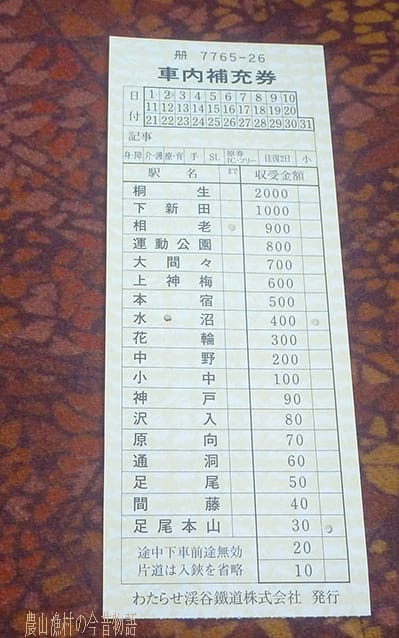 冊 7765-26
車内補充券
日 1 2 3 4 5 6 7 8 9 10
11 12 13 14 15 16 17 18 19 20
付 21 22 23 24 25 26 27 28 29 30 31
記事
身・障 介・護 療・育 手 SL 原券 IC・フリー 往復2日 小
駅名 まで 収受金額
桐生 2000
下新田 1000
相老 900
運動公園 800
大間々 700
上神梅 600
本宿 500
水沼 400
花輪 300
中野 200
小中 100
神戸 90
沢入 80
原向 70
通洞 60
足尾 50
間藤 40
足尾本山 30
途中下車前途無効 20
片道は入鋏を省略 10
わたらせ渓谷鐵道株式会社 発行
農山漁村の今昔物語